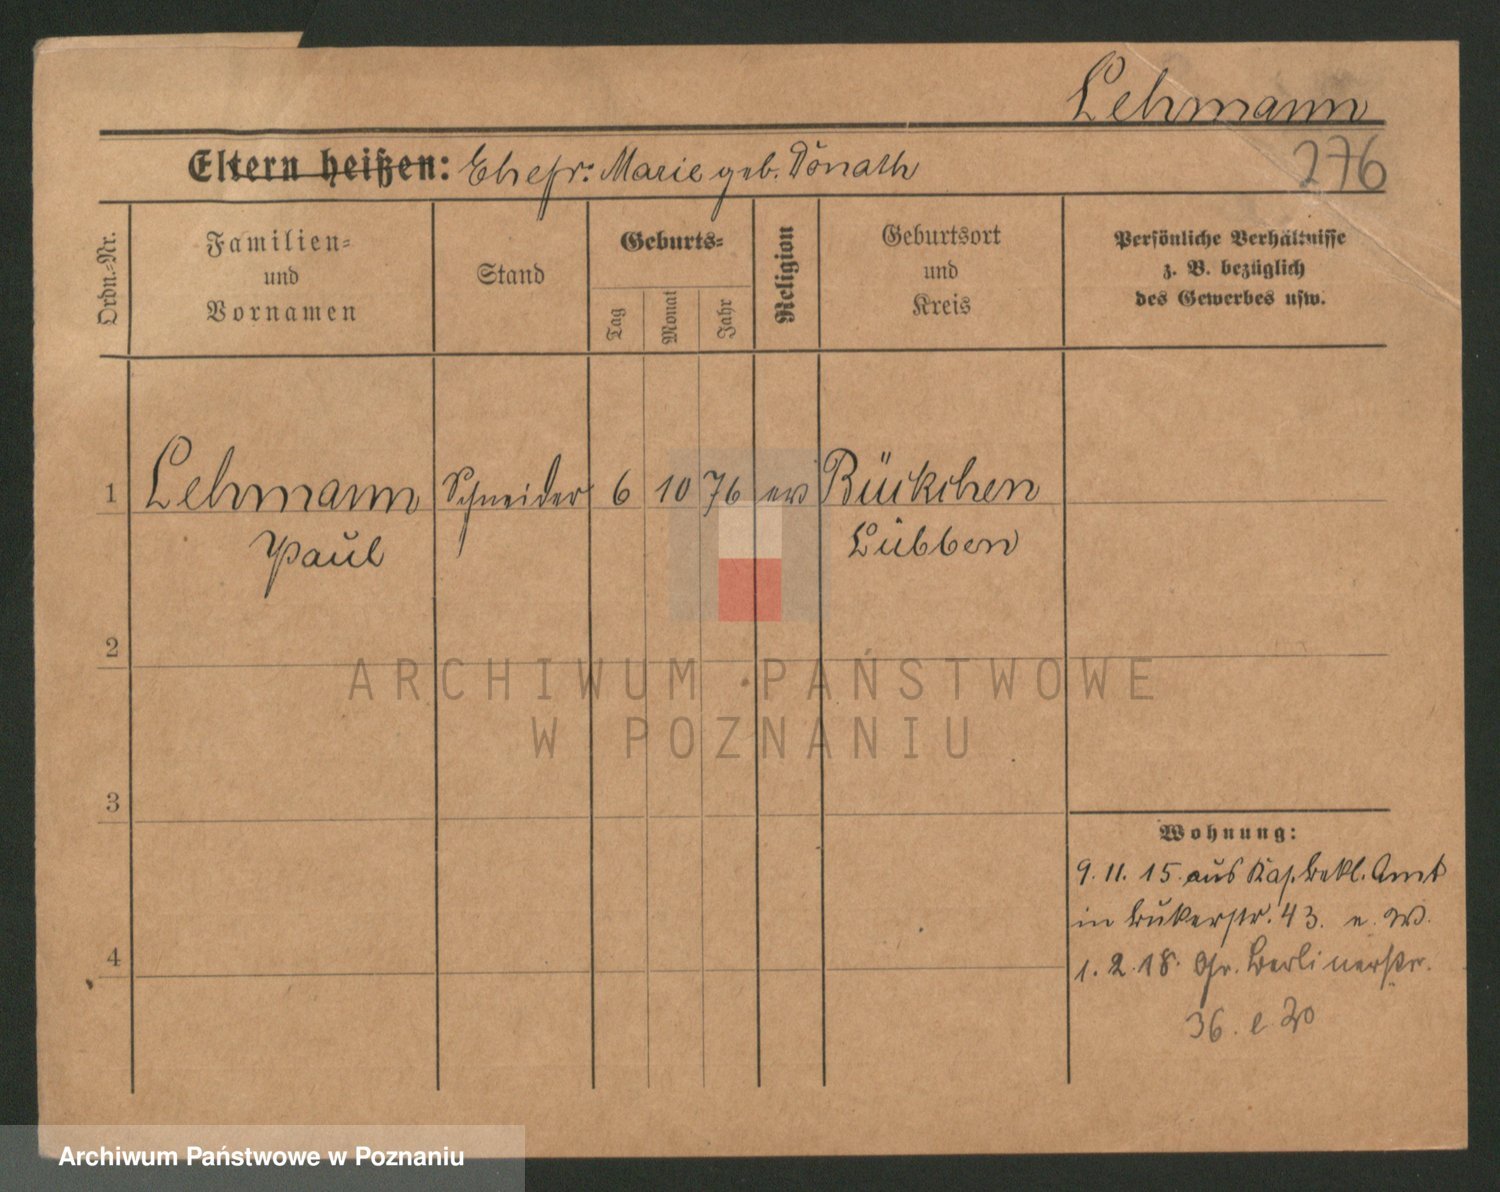 Lehmann
276
Eltern heißen: Ehefr: Marie geb. Donath
Ordn.-Nr.
Familien-
und
Vornamen
Stand
Geburts-
Tag
Monat
Jahr
Religion
Geburtsort
und
Kreis
Persönliche Verhältnisse
z. B. bezüglich
des Gewerbes usw.
1 Lehmann Schneider 6 10 76 ev Bückchen
Paul Lübben
2
3
4
Wohnung:
9. 11. 15. aus Kas. Bekl. Amt
in Bukerstr. 43. e. W.
1. 2. 18. Gr. Berlinerstr.
36. e
ARCHIWUM PAŃSTWOWE
W POZNANIU
Archiwum Państwowe w Poznaniu